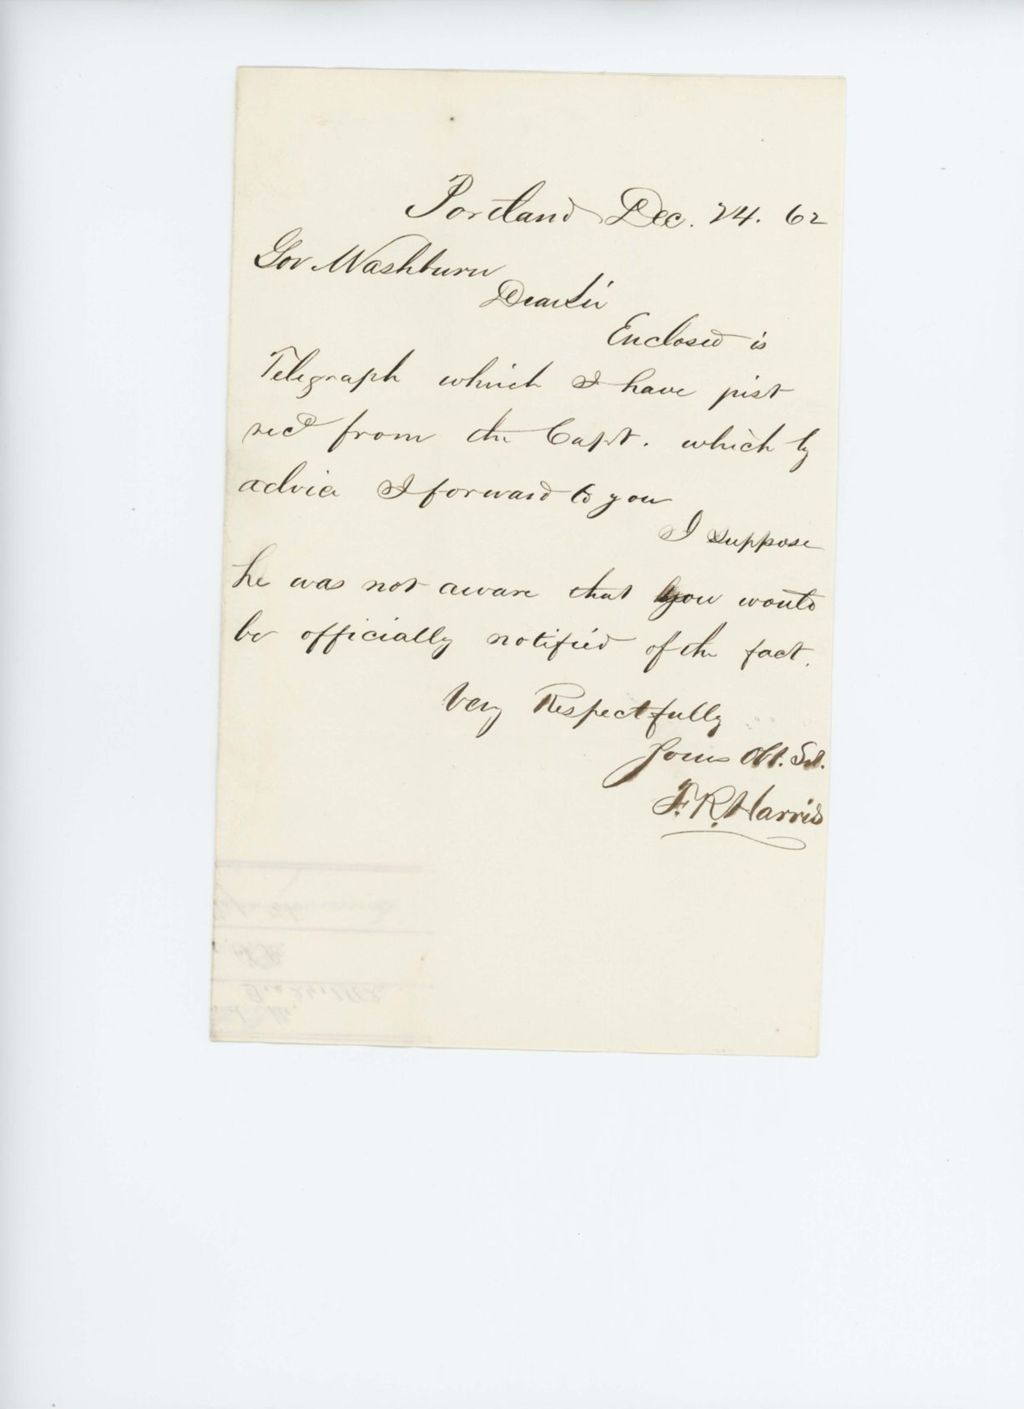 Portland Dec. 24. 62
Gov Washburn
Dear Sir
Enclosed is
Telegraph which I have just
recd from the Capt. which by
advice I forward to you
I suppose
he was not aware that you would
be officially notified of the fact.
Very Respectfully
Yours Obt. Svt.
F. R. Harris